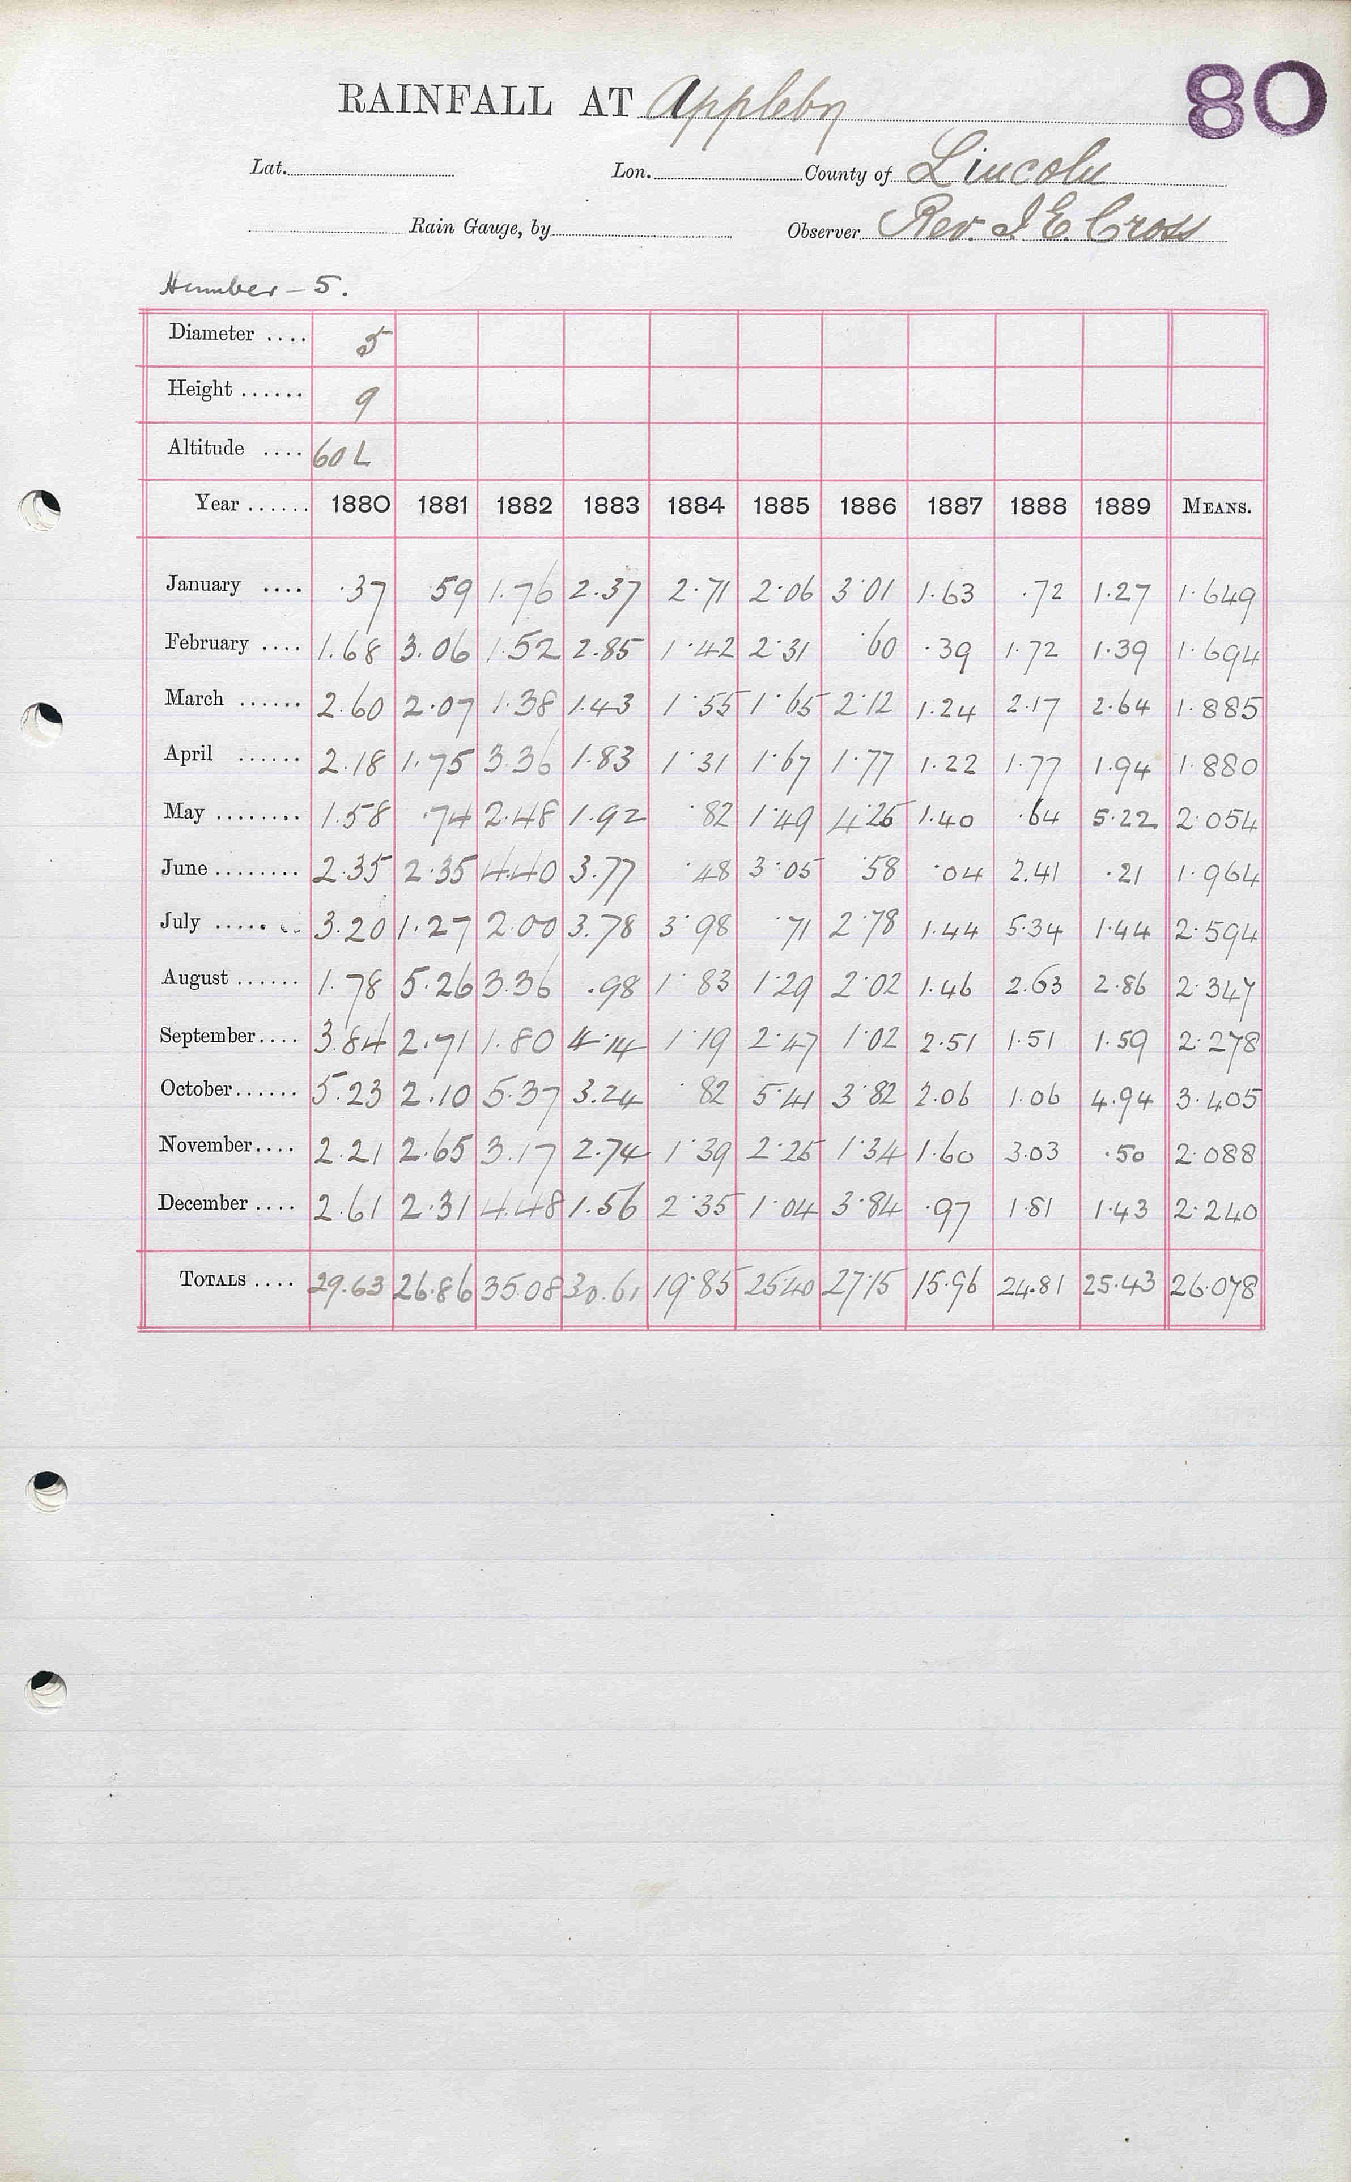 80
RAINFALL AT Appleby
Lat. Lon. County of Lincoln
Rain Gauge, by Observer Rev. J E. Cross
Humber - 5.
Diameter .... 5
Height ...... 9
Altitude .... 60 L
Year ...... 1880 1881 1882 1883 1884 1885 1886 1887 1888 1889 MEANS.
January .... .37 59 1.76 2.37 2.71 2.06 3.01 1.63 .72 1.27 1.649
February .... 1.68 3.06 1.52 2.85 1.42 2.31 .60 .39 1.72 1.39 1.694
March ...... 2.60 2.07 1.38 1.43 1.55 1.65 2.12 1.24 2.17 2.64 1.885
April ...... 2.18 1.75 3.36 1.83 1.31 1.67 1.77 1.22 1.77 1.94 1.880
May ........ 1.58 .74 2.48 1.92 .82 1.49 4.26 1.40 .64 5.22 2.054
June ........ 2.35 2.35 4.40 3.77 .48 3.05 .58 .04 2.41 .21 1.964
July ..... 3.20 1.27 2.00 3.78 3.98 .71 2.78 1.44 5.34 1.44 2.594
August ...... 1.78 5.26 3.36 .98 1.83 1.29 2.02 1.46 2.63 2.86 2.347
September.... 3.84 2.71 1.80 4.14 1.19 2.47 1.02 2.51 1.51 1.59 2.278
October...... 5.23 2.10 5.37 3.24 .82 5.41 3.82 2.06 1.06 4.94 3.405
November.... 2.21 2.65 3.17 2.74 1.39 2.25 1.34 1.60 3.03 .50 2.088
December .... 2.61 2.31 4.48 1.56 2.35 1.04 3.84 .97 1.81 1.43 2.240
TOTALS .... 29.63 26.86 35.08 30.61 19.85 25.40 27.15 15.96 24.81 25.43 26.078